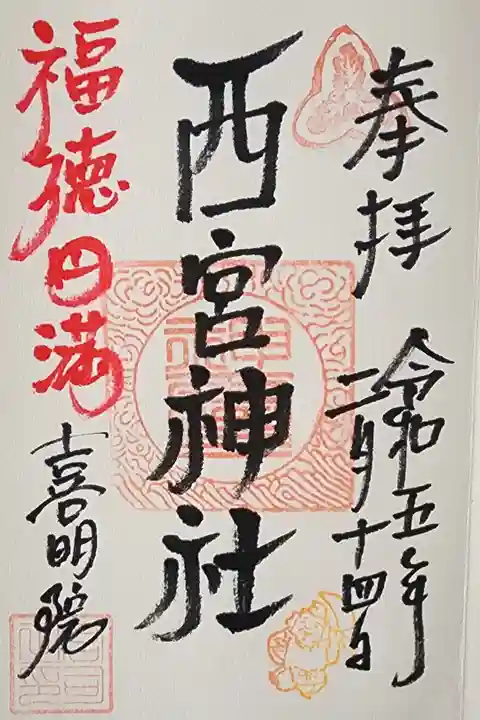 奉拝
令和五年
二月十四日
西宮神社
福徳円満
喜明院